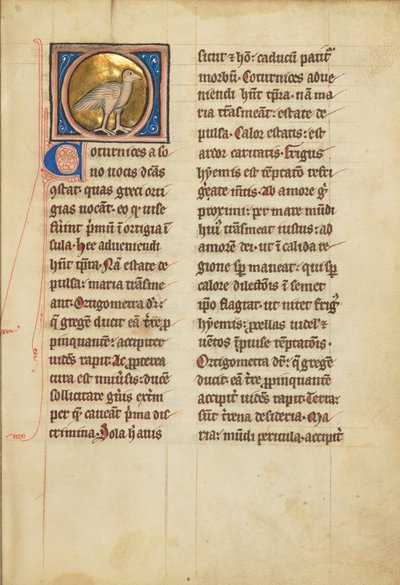 Coturnices a so
no uocis dc̄as
9stat. quas greci orti
gias uocant. eo qͥ uise
fuint p̄mū ī ortigia ī
sula. Hee adueniendi
hn̄t tp̄ra. Nā estate de
pulsa: maria trāsme
ant. Ortigometra dr̄:
q̄ gregē ducit eā tr̄e ꝓ
pinquantē: accipiter
uidēs rapit. Ac ꝓpterea
cura est uniūsis: ducē
sollicitare gn̄is extn̄i
per qē caueāt p̄ma dis
crimina. Sola h̄ auis
sicut et ho: caducū patit̉
morbū. Coturnices adue
niendi hn̄t tp̄ra. nā ma
ria trāsmeāt: estate de
pulsa. Calor estatis: est
ardor caritatis. Frigus
hyemis: est temptacō refri
gerate mn̄tis. Ab amore gͦ
proximi: per mare mūdi
huī trāsmeat iustus: ad
amorē dei. ut ī calida re
gione sꝑ maneat: qui sꝑ
calore dilectōis ī semet
ip̄o flagrat. ut uitet frig9
hyemis: ꝓcellas uidelꝫ
uētos īpuise tēptatōnis.
Ortigometra dr̄: q̄ gregē
ducit. eā tr̄e ꝓpinquantē
accipit̉ uidēs rapit. Terra:
sūt tr̄ena desideria. Ma
ria: mūdi pericula. accipit̉